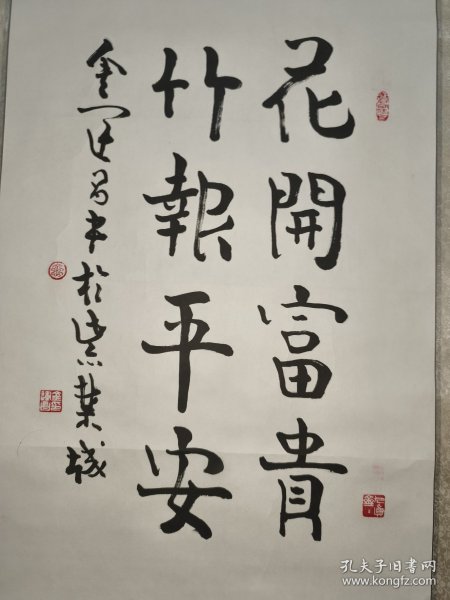 花開富貴
竹報平安
金運昌書於紫禁城
孔夫子旧书网
www.kongfz.com